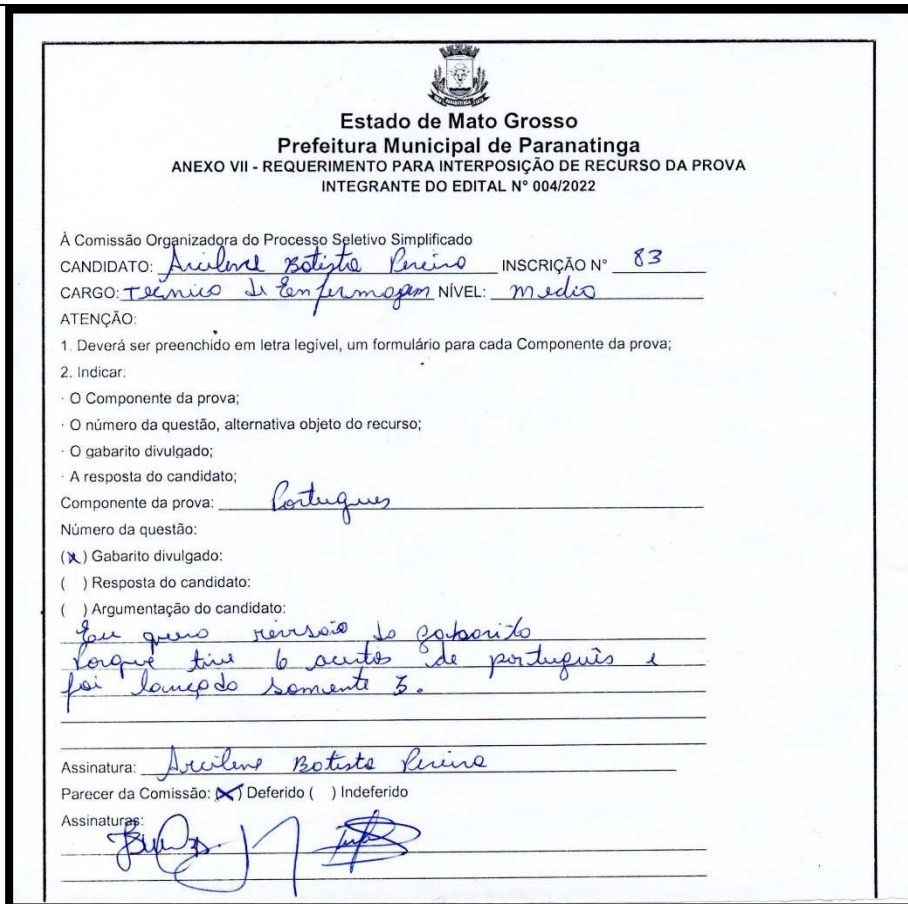 Estado de Mato Grosso
Prefeitura Municipal de Paranatinga
ANEXO VII - REQUERIMENTO PARA INTERPOSIÇÃO DE RECURSO DA PROVA
INTEGRANTE DO EDITAL N° 004/2022
À Comissão Organizadora do Processo Seletivo Simplificado
CANDIDATO: Arcilene Batista Pereira INSCRIÇÃO N° 83
CARGO: Tecnico de Enfermagem NÍVEL: medio
ATENÇÃO:
1. Deverá ser preenchido em letra legível, um formulário para cada Componente da prova;
2. Indicar:
· O Componente da prova;
· O número da questão, alternativa objeto do recurso;
· O gabarito divulgado;
· A resposta do candidato;
Componente da prova: Portugues
Número da questão:
(x) Gabarito divulgado:
( ) Resposta do candidato:
( ) Argumentação do candidato:
Eu quero revisão do gabarito
Porque tive 6 acertos de português e
foi lançado somente 5.
Assinatura: Arcilene Batista Pereira
Parecer da Comissão: (x) Deferido ( ) Indeferido
Assinaturas: